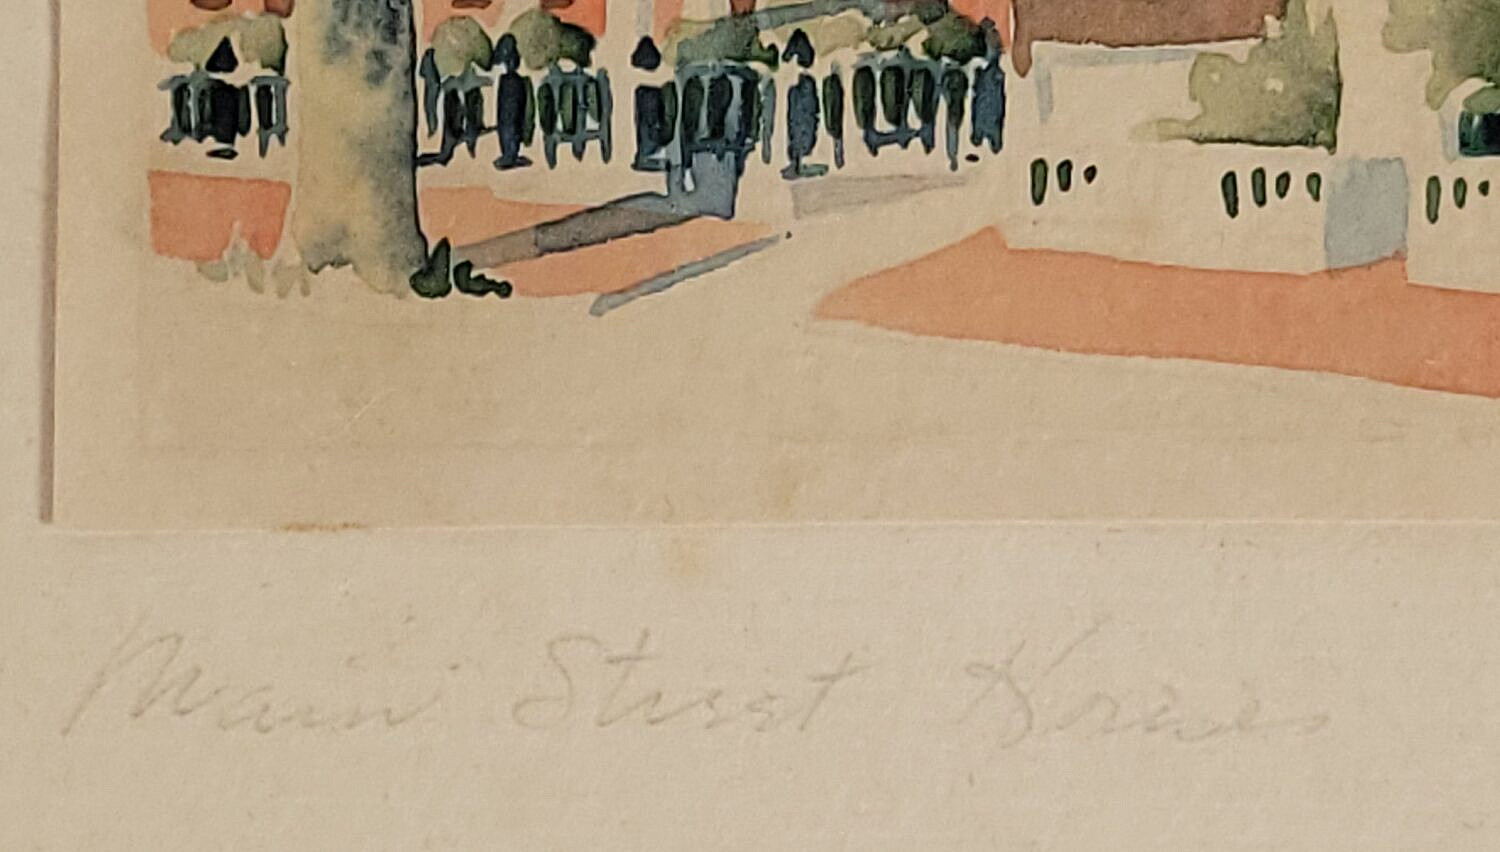 Main Street Houses